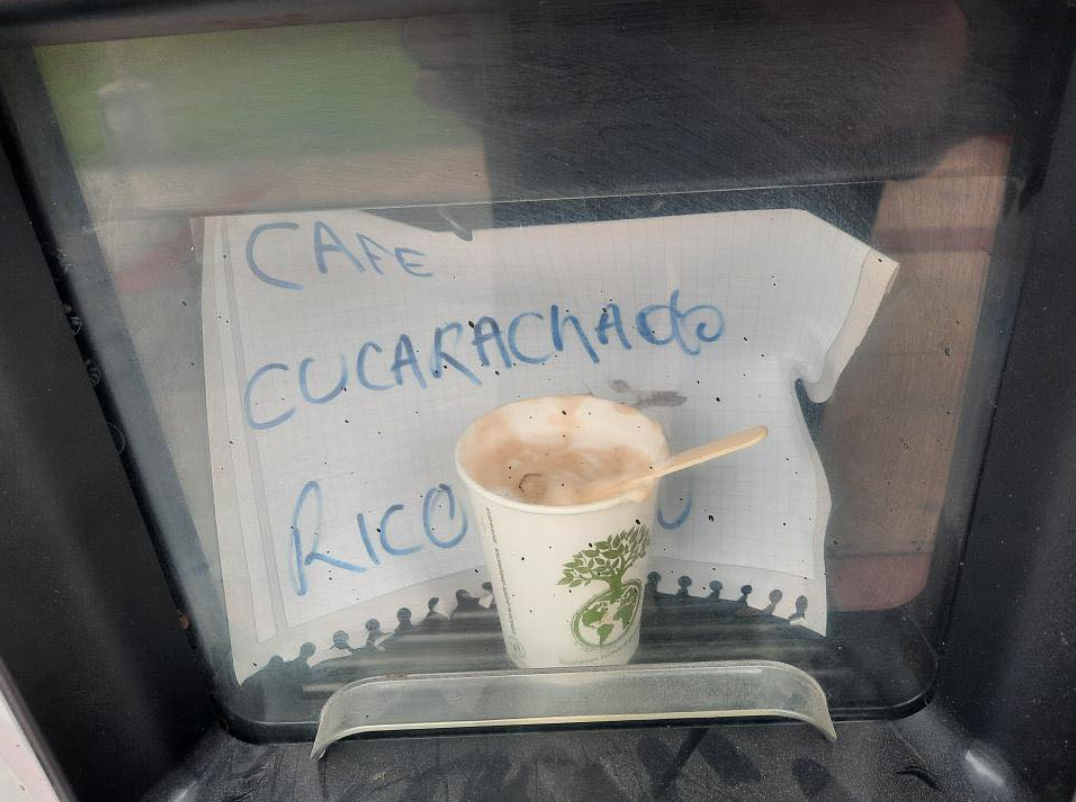 CAFE
CUCARACHAdo
RICO